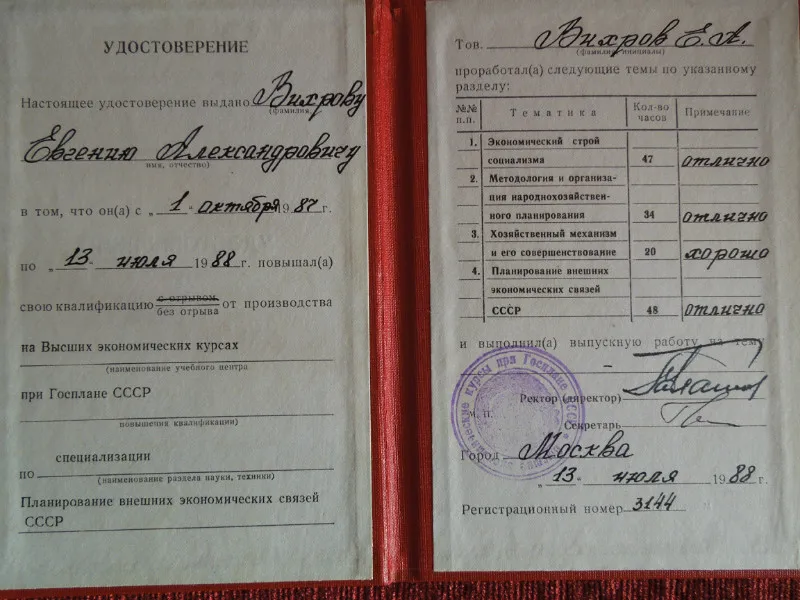 УДОСТОВЕРЕНИЕ
Настоящее удостоверение выдано Вихрову
(фамилия
Евгению Александровичу
имя, отчество)
в том, что он(а) с „ 1 " октября 1987 г.
по „ 13 " июля 1988 г. повышал(а)
свою квалификацию с отрывом от производства
без отрыва
на Высших экономических курсах
(наименование учебного центра
при Госплане СССР
повышения квалификации)
специализации
по
(наименование раздела науки, техники)
Планирование внешних экономических связей
СССР
Тов. Вихров Е.А.
(фамилия, инициалы)
проработал(а) следующие темы по указанному
разделу:
№№ Тематика Кол-во Примечание
п.п. часов
1. Экономический строй
социализма 47 отлично
2. Методология и организа-
ция народнохозяйствен-
ного планирования 34 отлично
3. Хозяйственный механизм
и его совершенствование 20 хорошо
4. Планирование внешних
экономических связей
СССР 48 отлично
и выполнил(а) выпускную работу на тему
Ректор (директор)
м. п.
Секретарь
Город Москва
„ 13 " июля 1988 г.
Регистрационный номер 3144
курсы при Госплане СССР